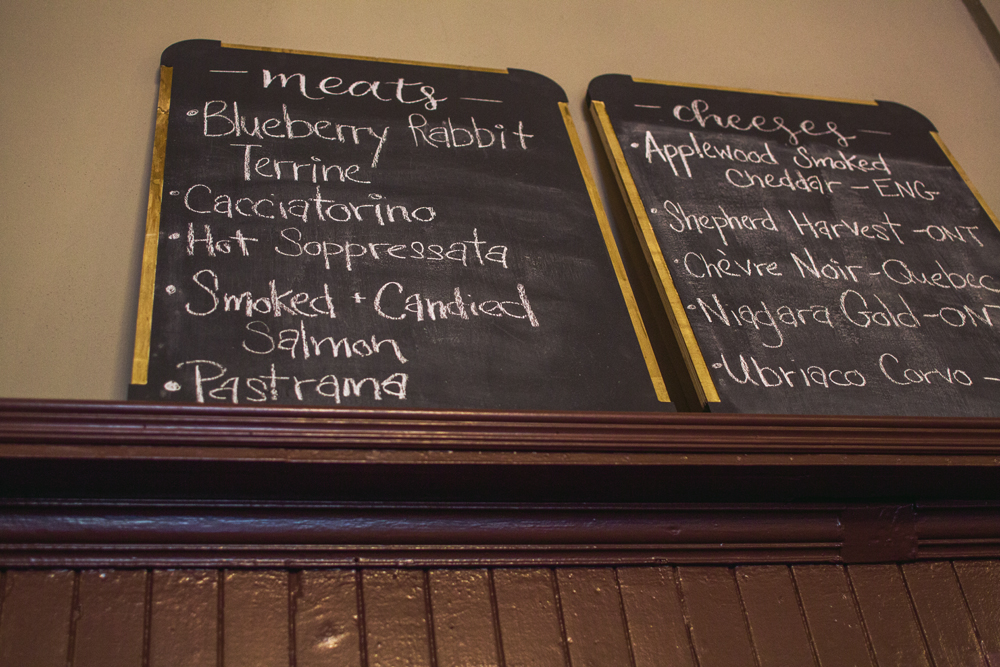 - meats -
• Blueberry Rabbit
Terrine
• Cacciatorino
• Hot Soppressata
• Smoked + Candied
Salmon
• Pastrama
- cheeses -
• Applewood Smoked
Cheddar - ENG-
• Shepherd Harvest - ONT
• Chèvre Noir - Quebec
• Niagara Gold - ONT
• Ubriaco Corvo -